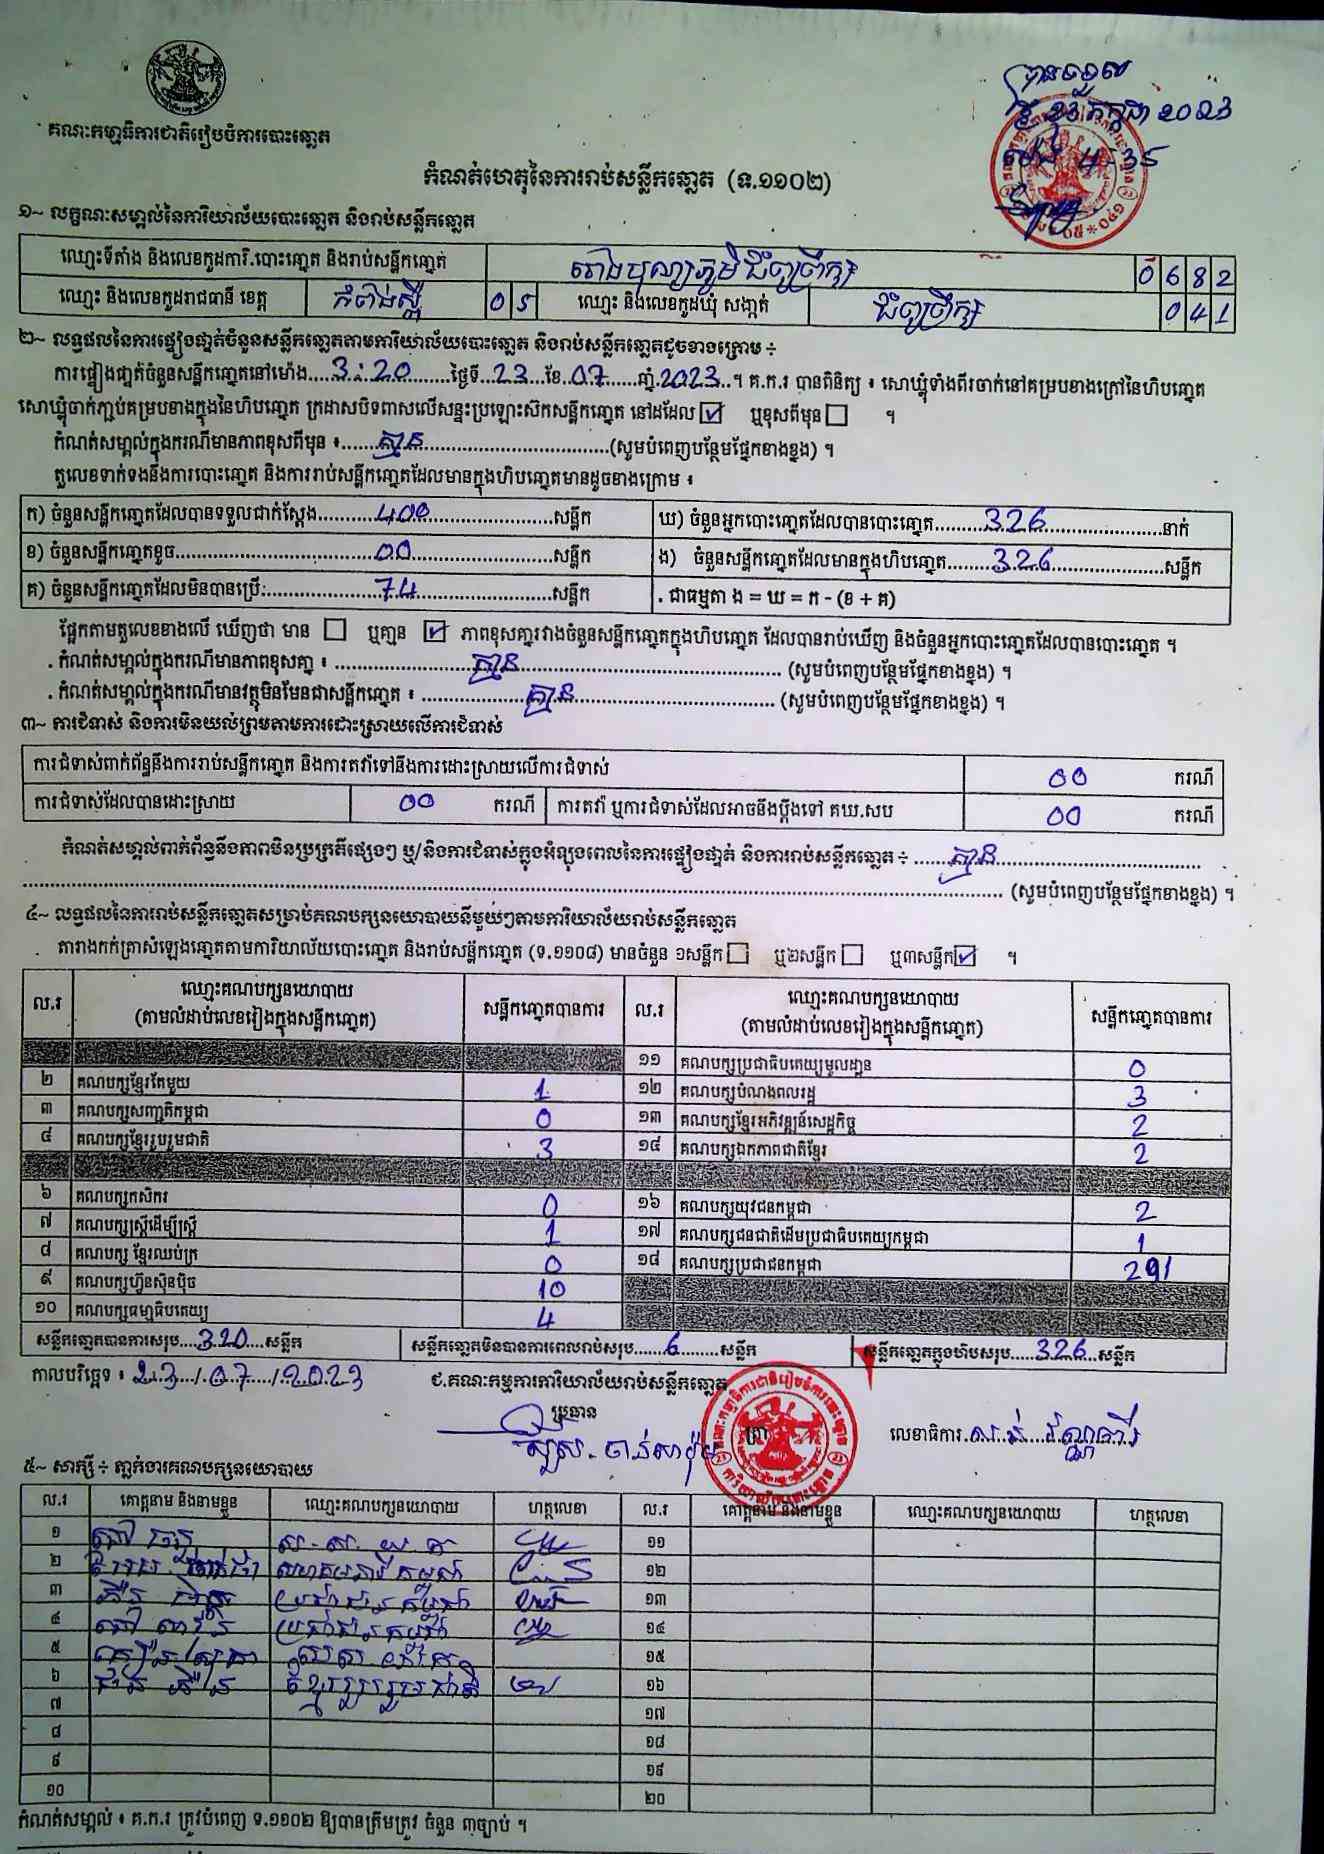 គណៈកម្មាធិការជាតិរៀបចំការបោះឆ្នោត
បានទទួល
ថ្ងៃ 23 កក្កដា 2023
ម៉ោង 4:35
កំណត់ហេតុនៃការរាប់សន្លឹកឆ្នោត (ទ.១១០២)
១~ លក្ខណៈសម្គាល់នៃការិយាល័យបោះឆ្នោត និងរាប់សន្លឹកឆ្នោត
ឈ្មោះទីតាំង និងលេខកូដការិ.បោះឆ្នោត និងរាប់សន្លឹកឆ្នោត់ រោងបុណ្យភូមិជំពូព្រឹក្ស 0682
ឈ្មោះ និងលេខកូដរាជធានី ខេត្ត កំពង់ស្ពឺ 05 ឈ្មោះ និងលេខកូដឃុំ សង្កាត់ ជំពូព្រឹក្ស 041
២~ លទ្ធផលនៃការផ្ទៀងផ្ទាត់ចំនួនសន្លឹកឆ្នោតតាមការិយាល័យបោះឆ្នោត និងរាប់សន្លឹកឆ្នោតដូចខាងក្រោម ៖
ការផ្ទៀងផ្ទាត់ចំនួនសន្លឹកឆ្នោតនៅម៉ោង....3:20....ថ្ងៃទី..23..ខែ..07....ឆ្នាំ.2023..។ គ.ក.រ បានពិនិត្យ ៖ សោឃ្លុំទាំងពីរចាក់នៅគម្របខាងក្រៅនៃហិបឆ្នោត
សោឃ្លុំចាក់ភ្ជាប់គម្របខាងក្នុងនៃហិបឆ្នោត ក្រដាសបិទពាសលើសន្ទះប្រឡោះស៊កសន្លឹកឆ្នោត នៅដដែល ☑ ឬខុសពីមុន ☐ ។
កំណត់សម្គាល់ក្នុងករណីមានភាពខុសពីមុន ៖......គ្មាន......(សូមបំពេញបន្ថែមផ្នែកខាងខ្នង) ។
តួលេខទាក់ទងនឹងការបោះឆ្នោត និងការរាប់សន្លឹកឆ្នោតដែលមានក្នុងហិបឆ្នោតមានដូចខាងក្រោម ៖
ក) ចំនួនសន្លឹកឆ្នោតដែលបានទទួលជាក់ស្តែង......400......សន្លឹក ឃ) ចំនួនអ្នកបោះឆ្នោតដែលបានបោះឆ្នោត......326......នាក់
ខ) ចំនួនសន្លឹកឆ្នោតខូច......00......សន្លឹក ង) ចំនួនសន្លឹកឆ្នោតដែលមានក្នុងហិបឆ្នោត......326......សន្លឹក
គ) ចំនួនសន្លឹកឆ្នោតដែលមិនបានប្រើ:......74......សន្លឹក . ជាធម្មតា ង = ឃ = ក - (ខ + គ)
ផ្អែកតាមតួលេខខាងលើ ឃើញថា មាន ☐ ឬគ្មាន ☑ ភាពខុសគ្នារវាងចំនួនសន្លឹកឆ្នោតក្នុងហិបឆ្នោត ដែលបានរាប់ឃើញ និងចំនួនអ្នកបោះឆ្នោតដែលបានបោះឆ្នោត ។
. កំណត់សម្គាល់ក្នុងករណីមានភាពខុសគ្នា ៖ ......គ្មាន...... (សូមបំពេញបន្ថែមផ្នែកខាងខ្នង) ។
. កំណត់សម្គាល់ក្នុងករណីមានវត្ថុមិនមែនជាសន្លឹកឆ្នោត ៖ ......គ្មាន...... (សូមបំពេញបន្ថែមផ្នែកខាងខ្នង) ។
៣~ ការជំទាស់ និងការមិនយល់ព្រមតាមការដោះស្រាយលើការជំទាស់
ការជំទាស់ពាក់ព័ន្ធនឹងការរាប់សន្លឹកឆ្នោត និងការតវ៉ាទៅនឹងការដោះស្រាយលើការជំទាស់ 00 ករណី
ការជំទាស់ដែលបានដោះស្រាយ 00 ករណី ការតវ៉ា ឬការជំទាស់ដែលអាចនឹងប្តឹងទៅ គឃ.សប 00 ករណី
កំណត់សម្គាល់ពាក់ព័ន្ធនឹងភាពមិនប្រក្រតីផ្សេងៗ ឬ/និងការជំទាស់ក្នុងអំឡុងពេលនៃការផ្ទៀងផ្ទាត់ និងការរាប់សន្លឹកឆ្នោត ៖ ......គ្មាន......
...... (សូមបំពេញបន្ថែមផ្នែកខាងខ្នង) ។
៤~ លទ្ធផលនៃការរាប់សន្លឹកឆ្នោតសម្រាប់គណបក្សនយោបាយនីមួយៗតាមការិយាល័យរាប់សន្លឹកឆ្នោត
តារាងកត់ត្រាសំឡេងឆ្នោតតាមការិយាល័យបោះឆ្នោត និងរាប់សន្លឹកឆ្នោត (ទ.១១០៨) មានចំនួន ១សន្លឹក ☐ ឬ២សន្លឹក ☐ ឬ៣សន្លឹក ☑ ។
ល.រ ឈ្មោះគណបក្សនយោបាយ (តាមលំដាប់លេខរៀងក្នុងសន្លឹកឆ្នោត) សន្លឹកឆ្នោតបានការ ល.រ ឈ្មោះគណបក្សនយោបាយ (តាមលំដាប់លេខរៀងក្នុងសន្លឹកឆ្នោត) សន្លឹកឆ្នោតបានការ
១១ គណបក្សប្រជាធិបតេយ្យមូលដ្ឋាន 0
២ គណបក្សខ្មែរតែមួយ 1 ១២ គណបក្សបំណងពលរដ្ឋ 3
៣ គណបក្សសញ្ជាតិកម្ពុជា 0 ១៣ គណបក្សខ្មែរអភិវឌ្ឍន៍សេដ្ឋកិច្ច 2
៤ គណបក្សខ្មែររួបរួមជាតិ 3 ១៤ គណបក្សឯកភាពជាតិខ្មែរ 2
៦ គណបក្សកសិករ 0 ១៦ គណបក្សយុវជនកម្ពុជា 2
៧ គណបក្សស្ត្រីដើម្បីស្ត្រី 1 ១៧ គណបក្សជនជាតិដើមប្រជាធិបតេយ្យកម្ពុជា 1
៨ គណបក្ស ខ្មែរឈប់ក្រ 0 ១៨ គណបក្សប្រជាជនកម្ពុជា 291
៩ គណបក្សហ៊្វុនស៊ិនប៉ិច 10
១០ គណបក្សធម្មាធិបតេយ្យ 4
សន្លឹកឆ្នោតបានការសរុប...320....សន្លឹក សន្លឹកឆ្នោតមិនបានការពេលរាប់សរុប......6......សន្លឹក សន្លឹកឆ្នោតក្នុងហិបសរុប.....326...សន្លឹក
កាលបរិច្ឆេទ ៖ 23/07/2023 ជ.គណៈកម្មការការិយាល័យរាប់សន្លឹកឆ្នោត
ប្រធាន
លេខាធិការ
៥~ សាក្សី ៖ ភ្នាក់ងារគណបក្សនយោបាយ
ល.រ គោត្តនាម និងនាមខ្លួន ឈ្មោះគណបក្សនយោបាយ ហត្ថលេខា ល.រ គោត្តនាម និងនាមខ្លួន ឈ្មោះគណបក្សនយោបាយ ហត្ថលេខា
១ ១១
២ ១២
៣ ប្រជាជនកម្ពុជា ១៣
៤ ប្រជាជនកម្ពុជា ១៤
៥ ១៥
៦ ខ្មែររួបរួមជាតិ ១៦
៧ ១៧
៨ ១៨
៩ ១៩
១០ ២០
កំណត់សម្គាល់ ៖ គ.ក.រ ត្រូវបំពេញ ទ.១១០២ ឱ្យបានត្រឹមត្រូវ ចំនួន ៣ច្បាប់ ។